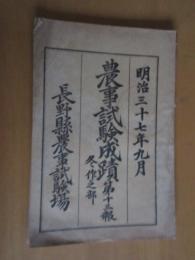 明治三十七年九月
農事試驗成蹟第十三報
冬作之部
長野縣農事試驗場